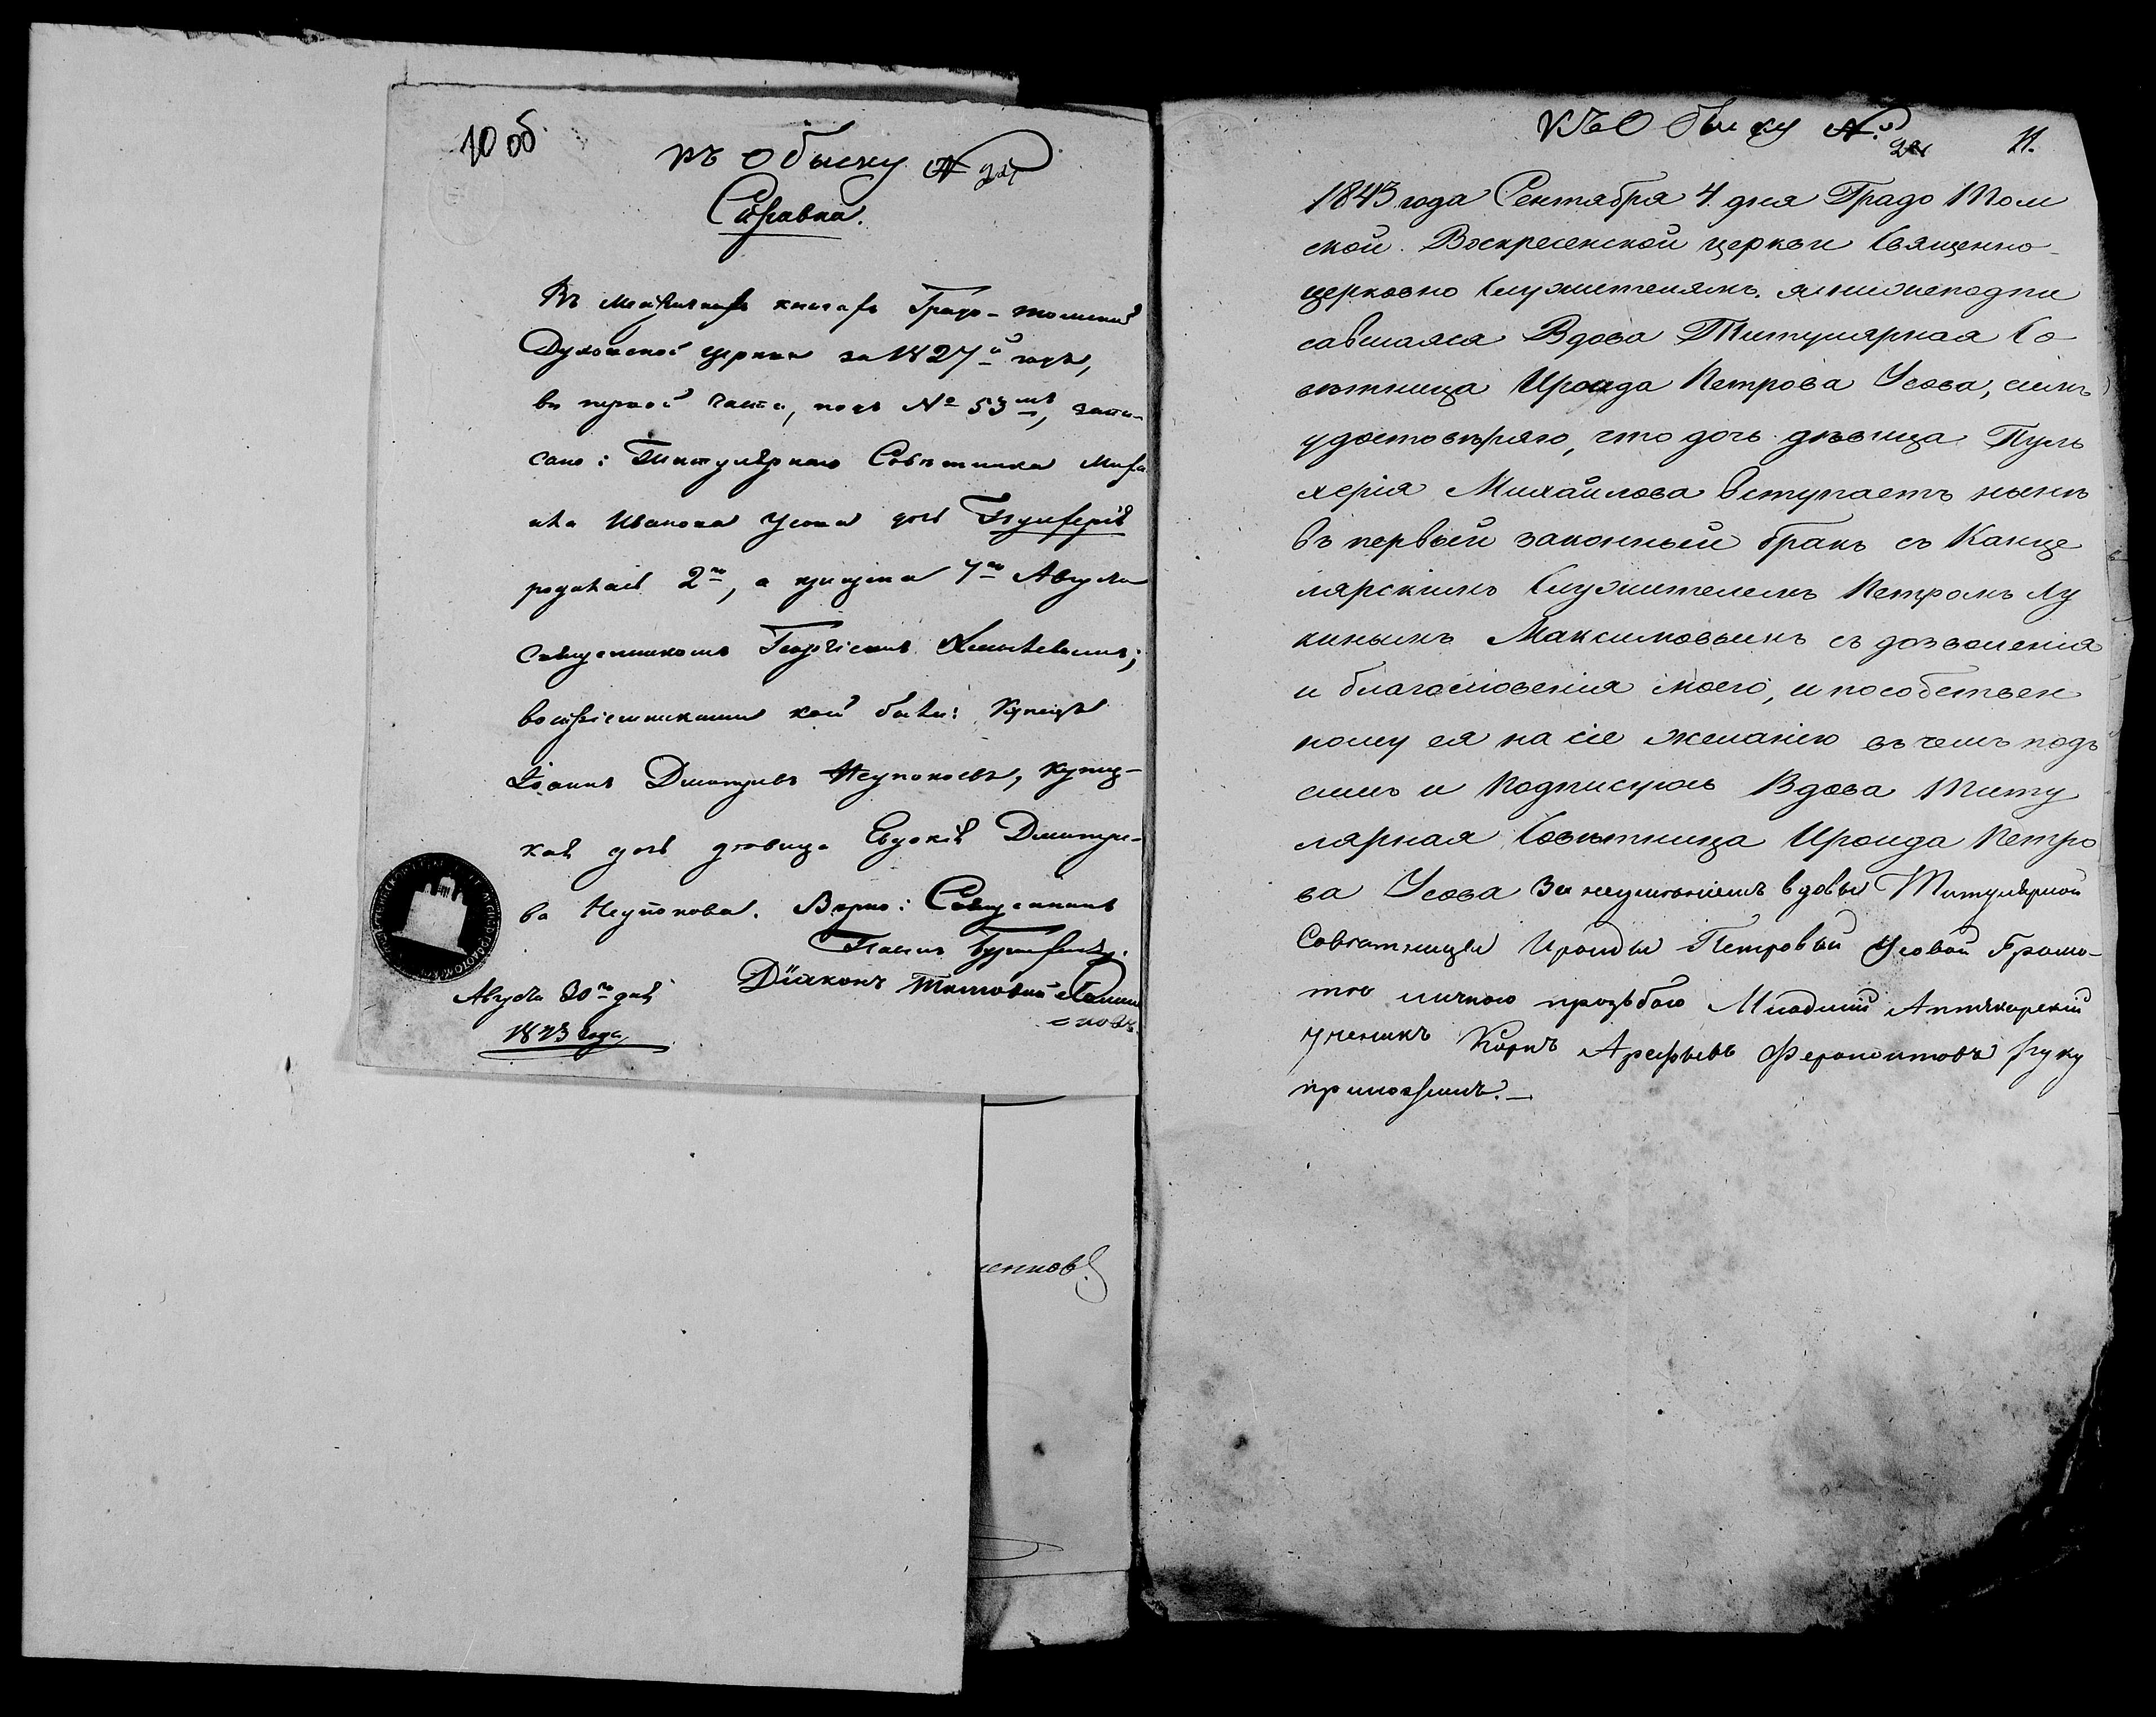 10 об.
къ Обыску №
Справка.
Въ метрическихъ книгахъ Градо-томской
Духовской церкви за 1827й годъ,
въ первой части, подъ № 53мъ, запи-
сано: Титулярнаго Совѣтника Миха
ила Иванова Усова дочь Пульхерія
родилась 2го, а крещена 7го Августа
Священникомъ Георгіемъ
воспріемниками кои были: Купецъ
Іоаннъ Дмитріевъ Неупокоевъ, купец-
кая дочь дѣвица Евдокія Дмитріе-
ва Неупокоева. Вѣрно: Священникъ
Діаконъ
Августа 30го дня
1843 года
къ Обыску №
11.
1843 года Сентября 4. дня Градо Том
ской Воскресенской церкви Священно-
церковно Служителямъ. я нижеподпи
савшаяся Вдова Титулярная Со-
вѣтница Ироида Петрова Усова, симъ
удостовѣряю, что дочь дѣвица Пуль
херія Михайлова вступаетъ нынѣ
въ первый законный бракъ съ Канце
лярскимъ Служителемъ Петромъ Лу
кинымъ Максимовымъ съ дозволенія
и благословенія моего, и по собствен
ному ея на сіе желанію въ чемъ подъ
симъ и подписуюсь Вдова Титу
лярная Совѣтница Ироида Петро
ва Усова За неумѣніемъ вдовы Титулярной
Совѣтницы Ироиды Петровой Усовой Грамо-
тѣ личною прозьбою Младшій Аптекарскій
ученикъ Карпъ Арефьевъ Ферапонтовъ руку
приложилъ.—
енновъ